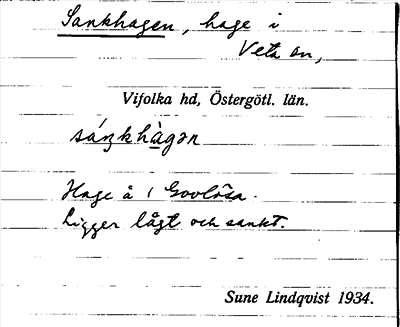 Sankhagen, hage i
Veta sn,
Vifolka hd, Östergötl. län.
sáŋkhàgən
Hage å 1 Govlösa.
Ligger lågt och sankt.
Sune Lindqvist 1934.